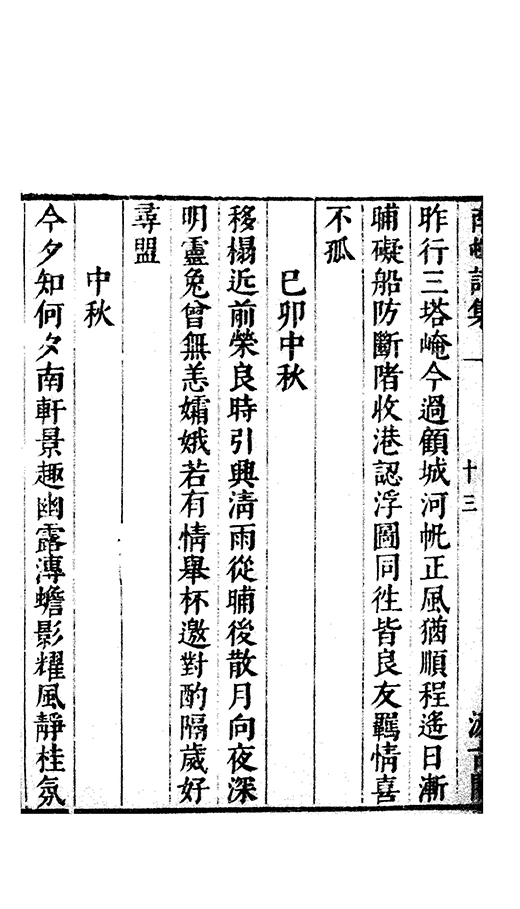 詩集一
十三
昨行三塔崦今過顧城河帆正風猶順程遙日漸
晡礙船防斷陼收港認浮圖同徃皆良友羈情喜
不孤
己卯中秋
移榻近前榮良時引興淸雨從晡後散月向夜深
明靈兔曾無恙孀娥若有情舉杯邀對酌隔歲好
尋盟
中秋
今夕知何夕南軒景趣幽露漙蟾影耀風靜桂氛